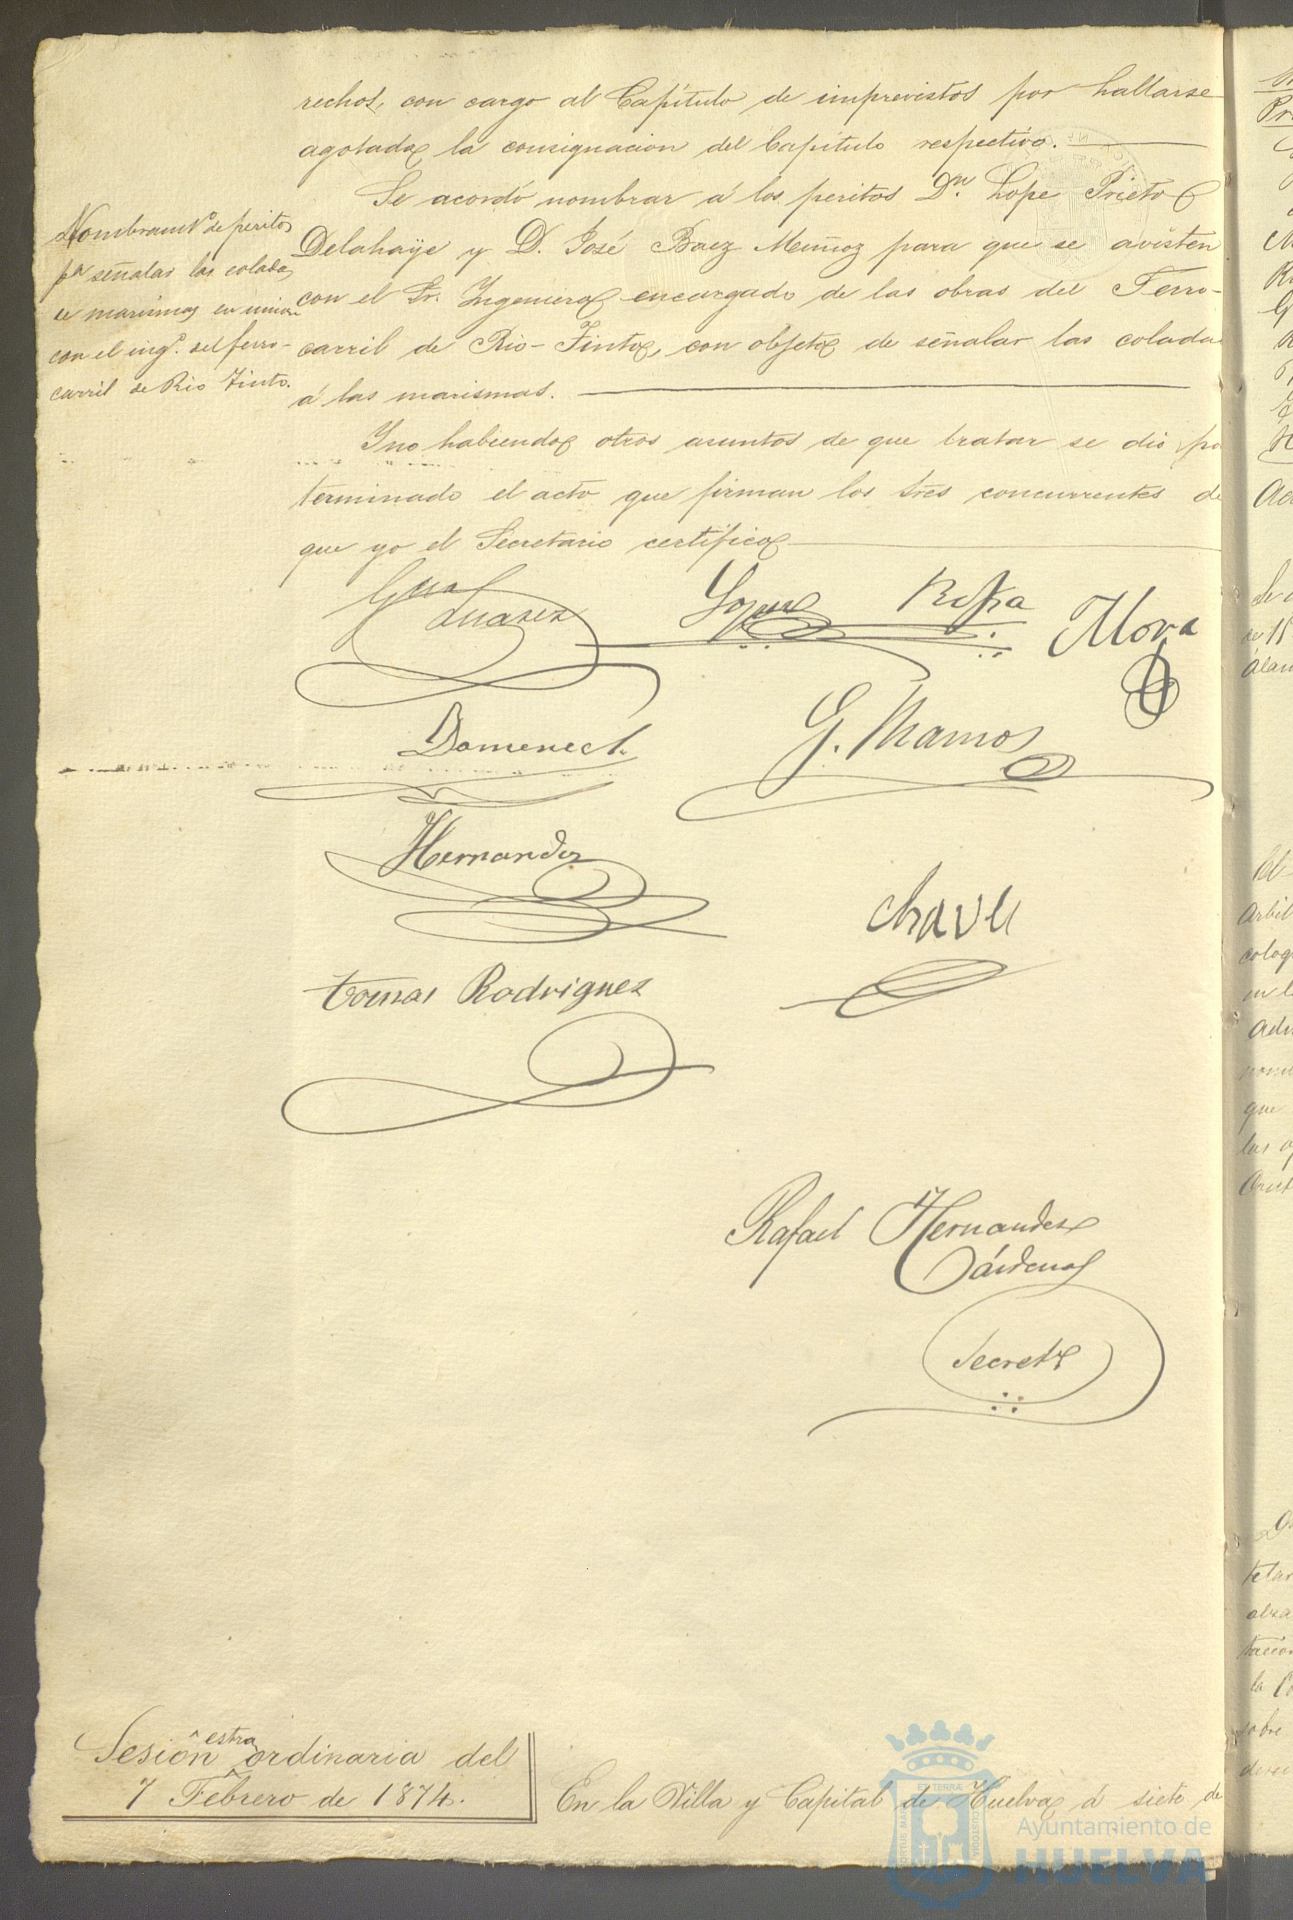 rechos, con cargo al Capítulo de imprevistos por hallarse
agotada la consignacion del Capítulo respectivo.
Se acordó nombrar á los peritos Dn. Lope Prieto
Delahaÿe y D. José Baez Muñoz para que se avisten
con el Sr. Ingeniero encargado de las obras del Ferro-
carril de Rio-Tinto, con objeto de señalar las colada
á las marismas.
Nombramto. de peritos
pa señalar las coladas
de marismas en union
con el ingo. del ferro-
carril de Rio Tinto.
Y no habiendo otros asuntos de que tratar se dió po
terminado el acto que firman los Sres concurrentes de
que yo el Secretario certifico
Suarez
Mora
Domenech
G. Ramos
Hernandez
Chavez
Tomas Rodriguez
Rafael Hernandez
Cárdenas
Secreto
Sesión estraordinaria del
7 Febrero de 1874.
En la Villa y Capital de Huelva á siete de
Ayuntamiento de
HUELVA